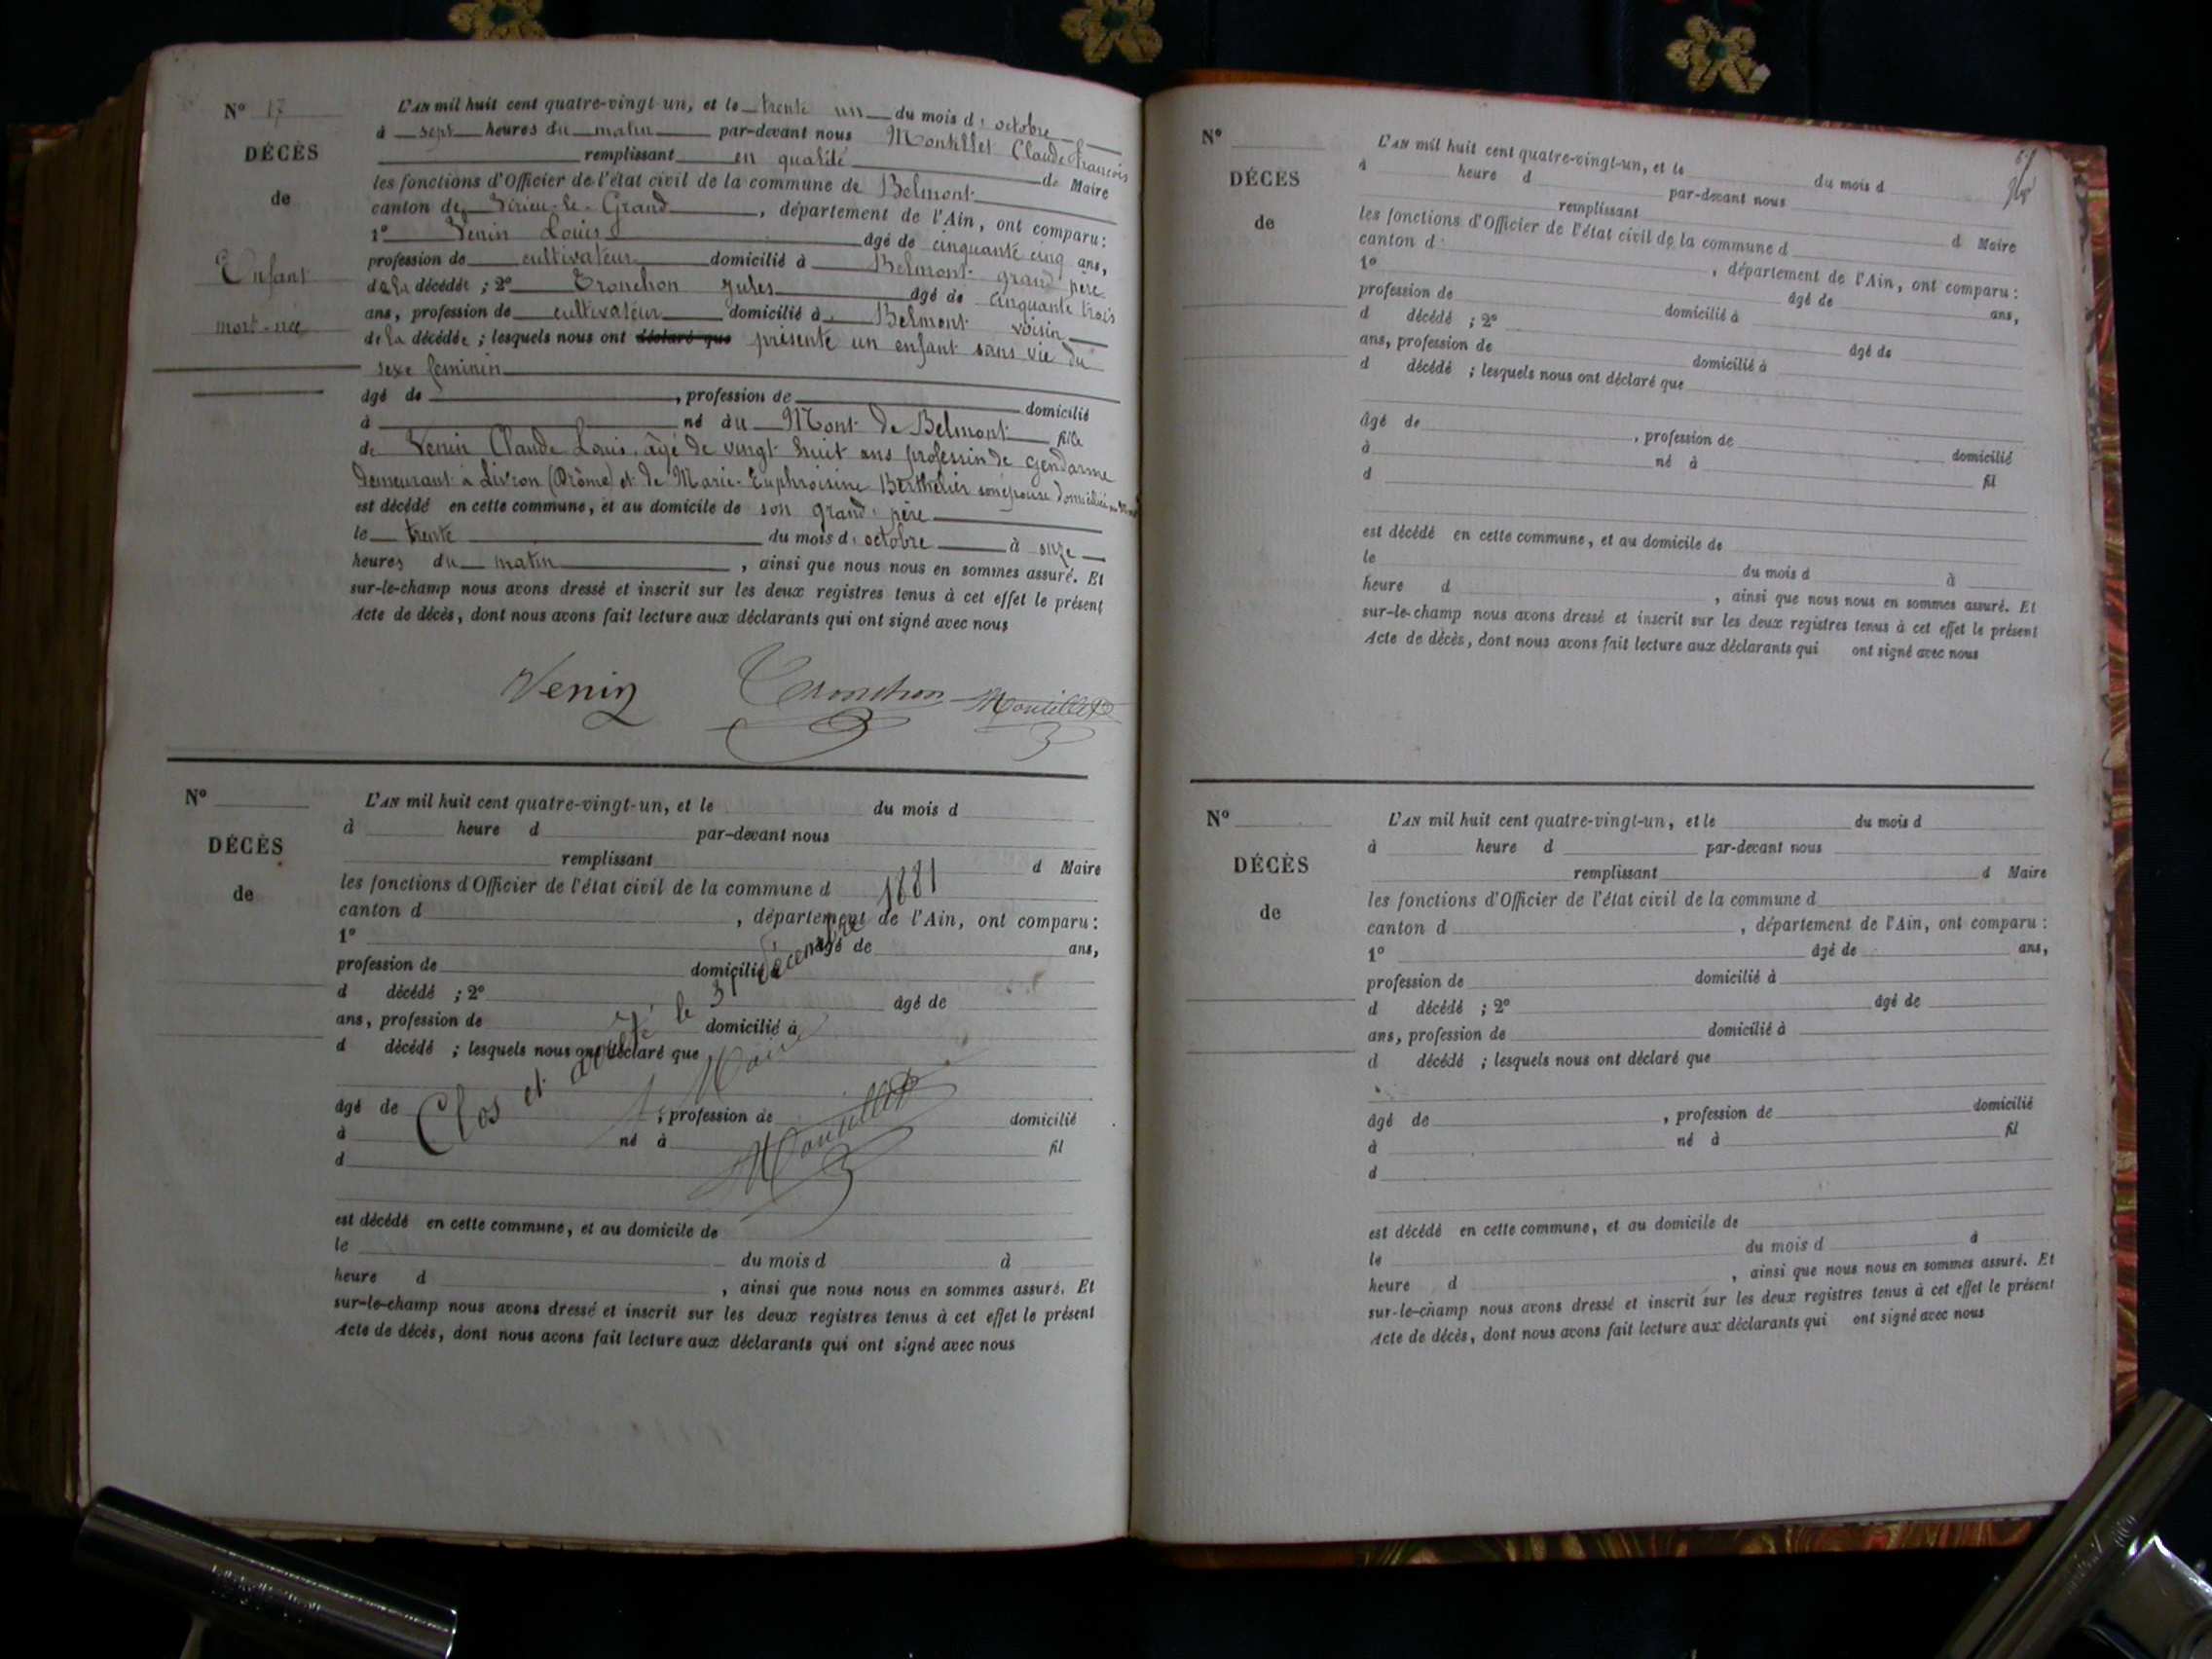 N° 17
DÉCÈS
de
Enfant
mort-née
L'AN mil huit cent quatre-vingt-un, et le trente un du mois d'octobre
à sept heures du matin par-devant nous Montillet Claude François
remplissant en qualité de Maire
les fonctions d'Officier de l'état civil de la commune de Belmont
canton de Virieu-le-Grand, département de l'Ain, ont comparu:
1° Venin Louis âgé de cinquante cinq ans,
profession de cultivateur domicilié à Belmont grand père
de la décédée; 2° Tronchon Jules âgé de cinquante trois
ans, profession de cultivateur domicilié à Belmont voisin
de la décédée; lesquels nous ont déclaré que présenté un enfant sans vie du
sexe féminin
âgé de , profession de domicilié
à né au Mont de Belmont fille
de Venin Claude Louis, âgé de vingt huit ans profession de gendarme
demeurant à Livron (Drôme) et de Marie-Euphroisine Berthelier son épouse domiciliée
est décédé en cette commune, et au domicile de son grand père
le trente du mois d'octobre à onze
heures du matin, ainsi que nous nous en sommes assuré. Et
sur-le-champ nous avons dressé et inscrit sur les deux registres tenus à cet effet le présent
Acte de décès, dont nous avons fait lecture aux déclarants qui ont signé avec nous
Venin Tronchon Montillet
N°
DÉCÈS
de
L'AN mil huit cent quatre-vingt-un, et le du mois d
à heure d par-devant nous
remplissant d Maire
les fonctions d'Officier de l'état civil de la commune d
canton d , département de l'Ain, ont comparu:
1° âgé de ans,
profession de domicilié à
d décédé ; 2° âgé de
ans, profession de domicilié à
d décédé ; lesquels nous ont déclaré que
âgé de , profession de domicilié
à né à fil
d
Clos et arrêté le 31 décembre 1881
Maire
Montillet
est décédé en cette commune, et au domicile de
le du mois d à
heure d , ainsi que nous nous en sommes assuré. Et
sur-le-champ nous avons dressé et inscrit sur les deux registres tenus à cet effet le présent
Acte de décès, dont nous avons fait lecture aux déclarants qui ont signé avec nous
N°
DÉCÈS
de
L'AN mil huit cent quatre-vingt-un, et le du mois d
à heure d par-devant nous
remplissant d Maire
les fonctions d'Officier de l'état civil de la commune d
canton d , département de l'Ain, ont comparu:
1° âgé de ans,
profession de domicilié à
d décédé ; 2° âgé de
ans, profession de domicilié à
d décédé ; lesquels nous ont déclaré que
âgé de , profession de domicilié
à né à fil
d
est décédé en cette commune, et au domicile de
le du mois d à
heure d , ainsi que nous nous en sommes assuré. Et
sur-le-champ nous avons dressé et inscrit sur les deux registres tenus à cet effet le présent
Acte de décès, dont nous avons fait lecture aux déclarants qui ont signé avec nous
N°
DÉCÈS
de
L'AN mil huit cent quatre-vingt-un, et le du mois d
à heure d par-devant nous
remplissant d Maire
les fonctions d'Officier de l'état civil de la commune d
canton d , département de l'Ain, ont comparu:
1° âgé de ans,
profession de domicilié à
d décédé ; 2° âgé de
ans, profession de domicilié à
d décédé ; lesquels nous ont déclaré que
âgé de , profession de domicilié
à né à fil
d
est décédé en cette commune, et au domicile de
le du mois d à
heure d , ainsi que nous nous en sommes assuré. Et
sur-le-champ nous avons dressé et inscrit sur les deux registres tenus à cet effet le présent
Acte de décès, dont nous avons fait lecture aux déclarants qui ont signé avec nous